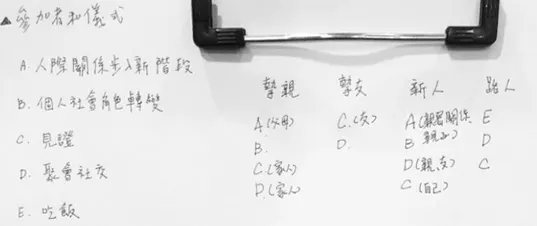 ▲參加者和儀式
A. 人際關係步入新階段
B. 個人社會角色轉變
C. 見證
D. 聚會社交
E. 吃飯
摯親 摯友 新人 路人
A.(父母) C.(友) A(親密關係 E
B. D. B 親子) D
C.(家人) D(親友) C
D.(家人) C(自己)